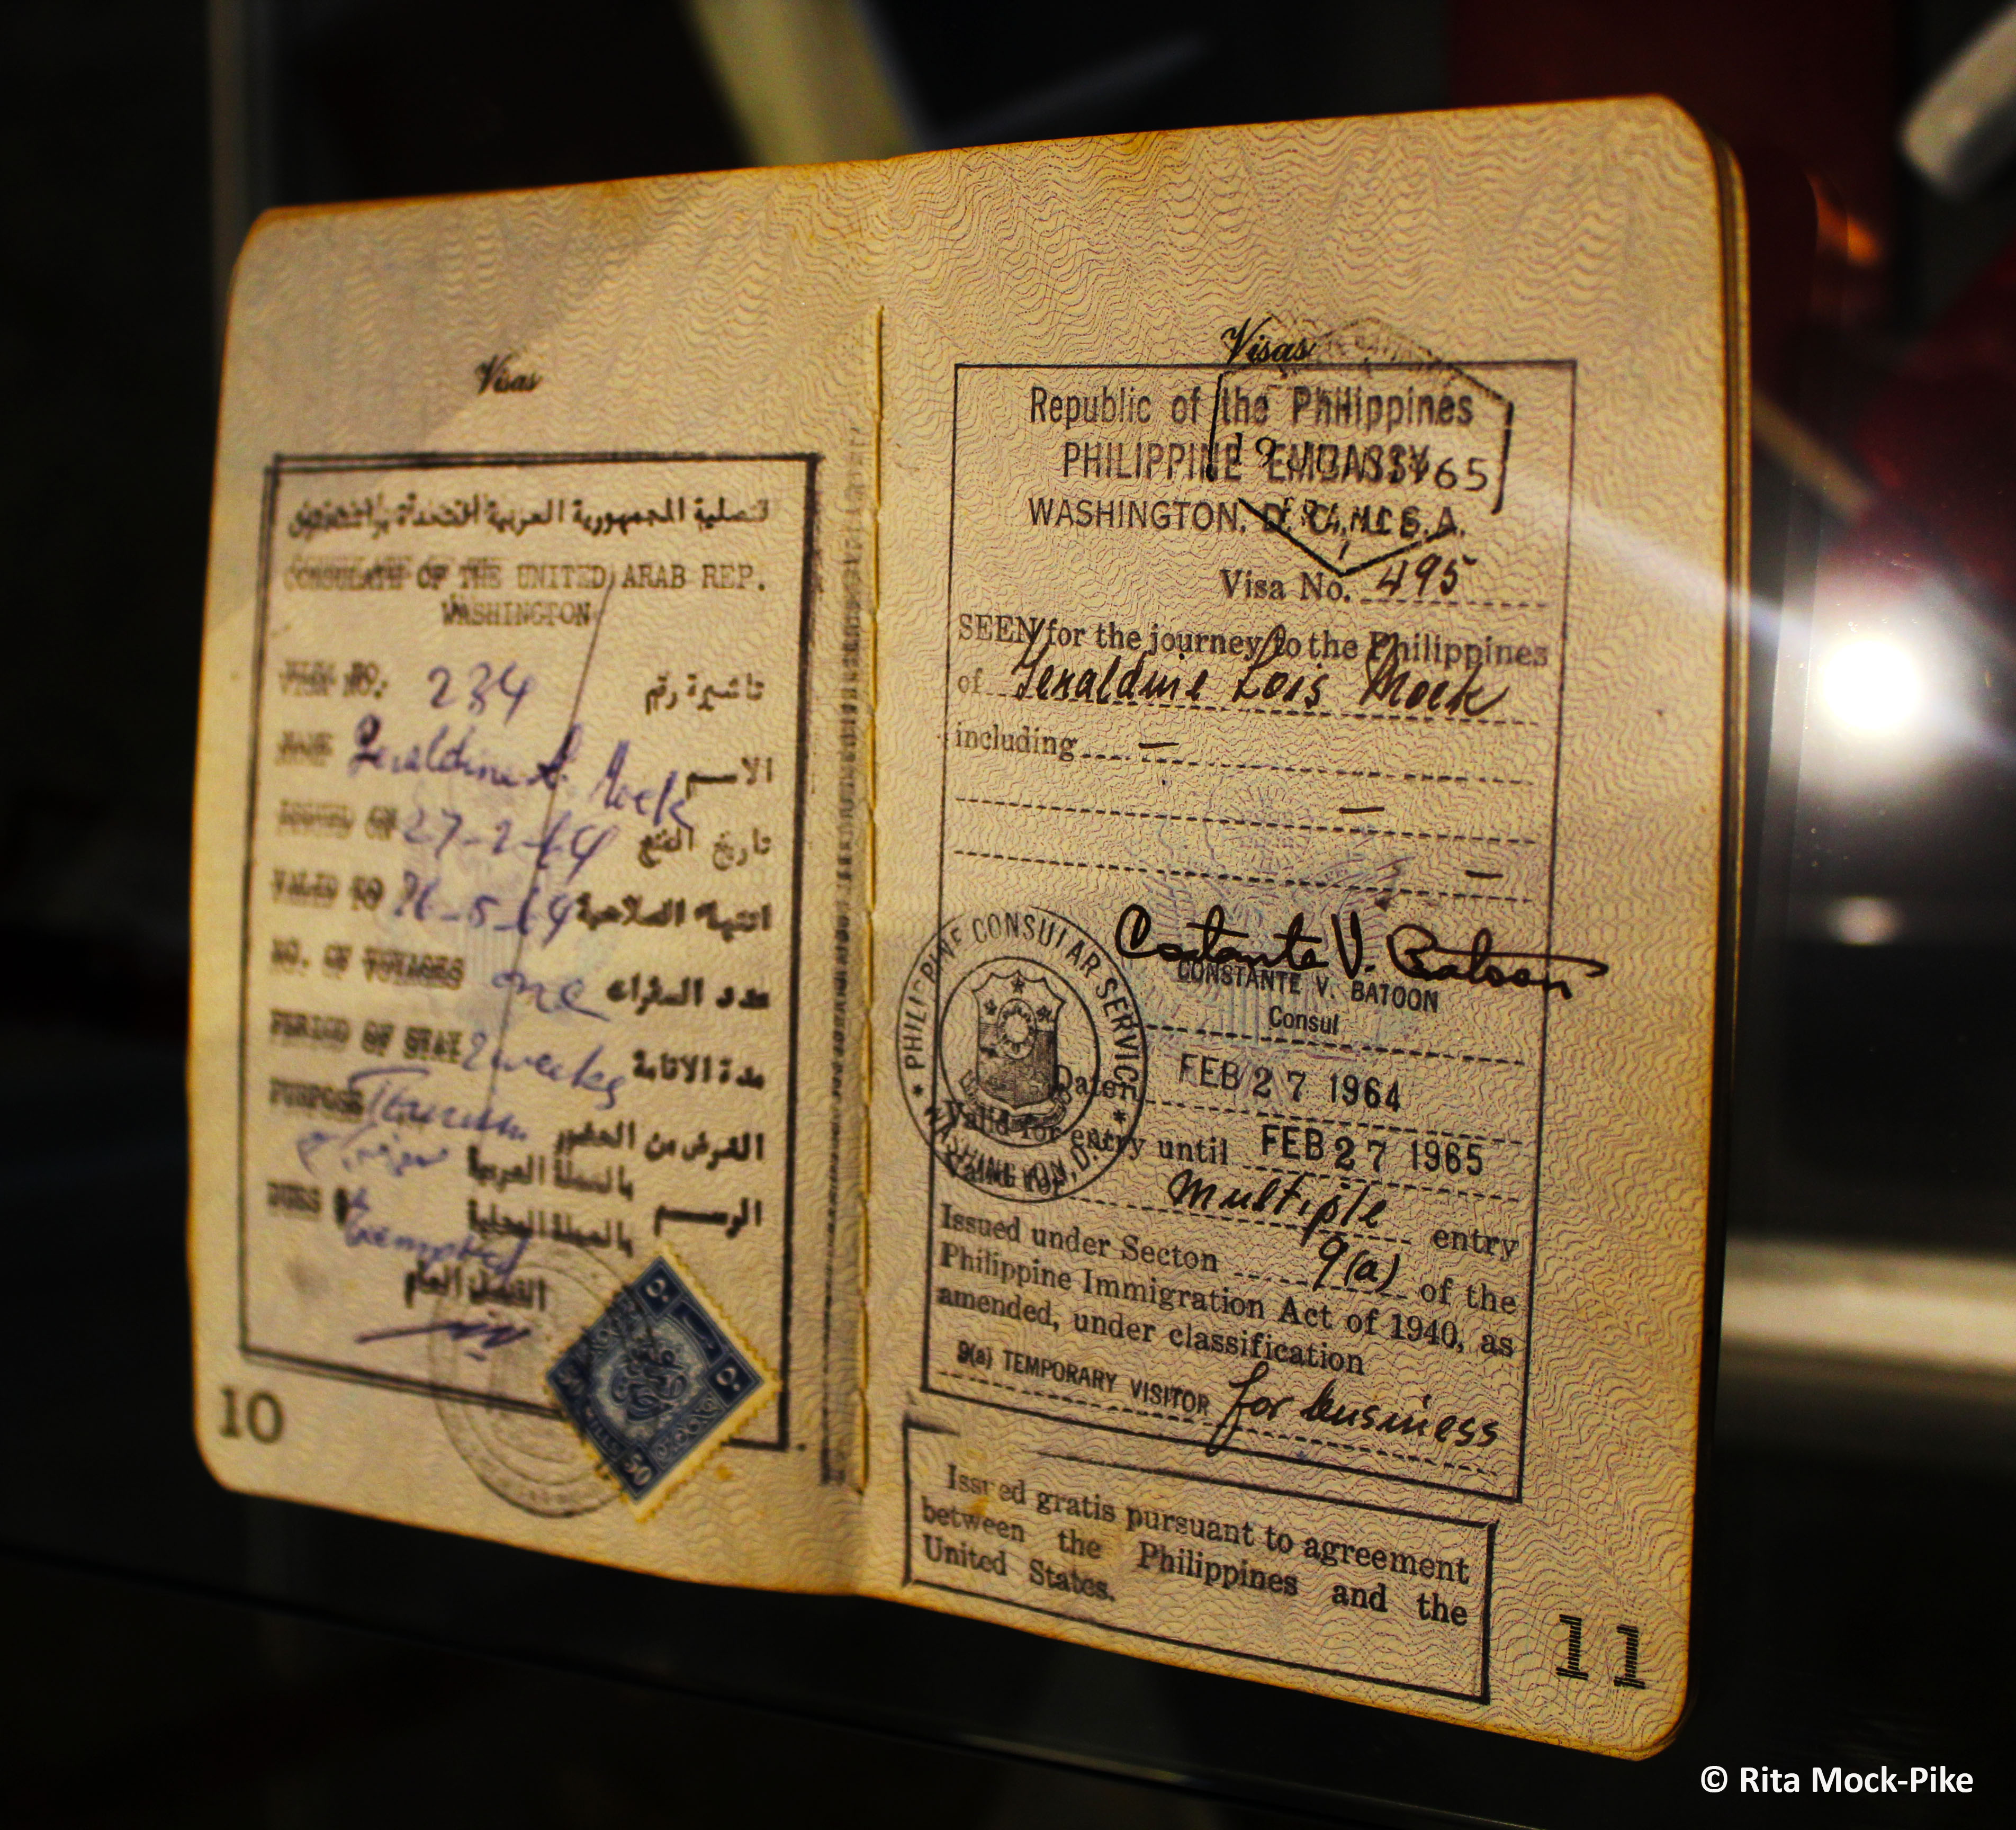 Visas
قنصلية الجمهورية العربية المتحدة بواشنطون
CONSULATE OF THE UNITED ARAB REP.
WASHINGTON
VISA NO: 234 تاشيرة رقم
NAME Geraldine L. Mock الاسم
ISSUED ON 27-2-64 تاريخ المنح
VALID TO 26-5-64 انتهاء الصلاحية
NO. OF VOYAGES one عدد السفرات
PERIOD OF STAY 2 weeks مدة الاقامة
PURPOSE Tourism الغرض من الحضور
بالعملة العربية
DUES $ الرسم
بالعملة المحلية
Exempted
القنصل العام
50
10
Visas
Republic of the Philippines
PHILIPPINE EMBASSY
WASHINGTON, D. C., U. S. A.
Visa No. 495
SEEN for the journey to the Philippines
of Geraldine Lois Mock
including — 
—
—
Costante V. Batoon
CONSTANTE V. BATOON
Consul
PHILIPPINE CONSULAR SERVICE
WASHINGTON, D.C.
Date FEB 27 1964
Valid for entry until FEB 27 1965
Valid for multiple entry
Issued under Secton 9(a) of the
Philippine Immigration Act of 1940, as
amended, under classification
9(a) TEMPORARY VISITOR for business
Issued gratis pursuant to agreement
between the Philippines and the
United States.
11
© Rita Mock-Pike